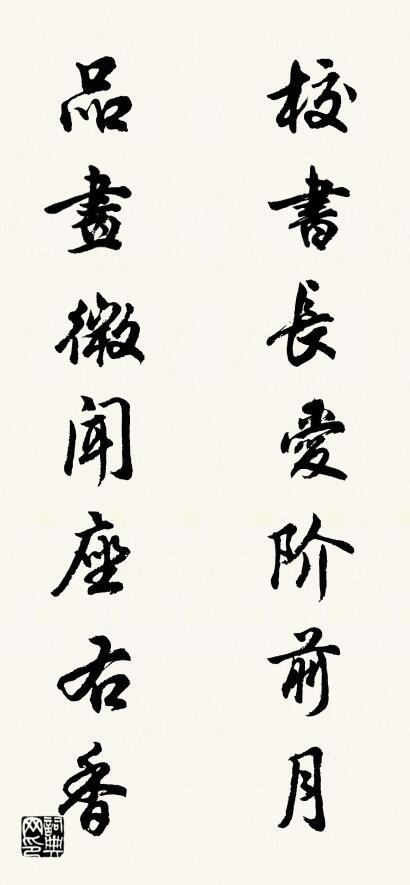 校書長愛阶前月
品畫微闻座右香
詞典网印